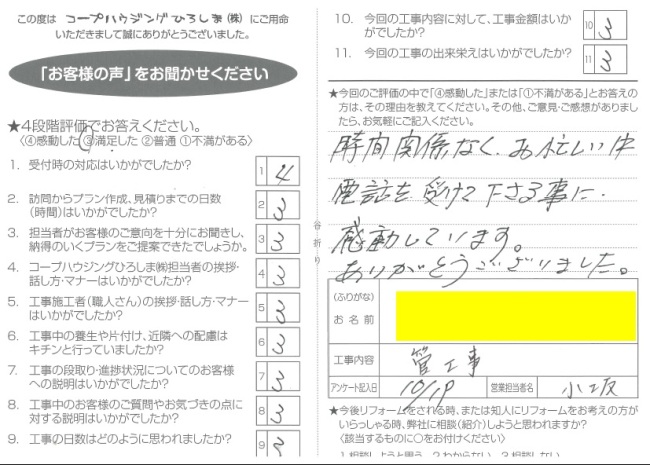 この度は コープハウジングひろしま(株) にご用命
いただきまして誠にありがとうございました。
「お客様の声」をお聞かせください
★4段階評価でお答えください。
〈④感動した ③満足した ②普通 ①不満がある〉
1. 受付時の対応はいかがでしたか? 1 4
2. 訪問からプラン作成、見積りまでの日数
(時間)はいかがでしたか? 2 3
3. 担当者がお客様のご意向を十分にお聞きし、
納得のいくプランをご提案できたでしょうか。 3 3
4. コープハウジングひろしま㈱担当者の挨拶・
話し方・マナーはいかがでしたか? 4 3
5. 工事施工者(職人さん)の挨拶・話し方・マナー
はいかがでしたか? 5 3
6. 工事中の養生や片付け、近隣への配慮は
キチンと行っていましたか? 6 3
7. 工事の段取り・進捗状況についてのお客様
への説明はいかがでしたか? 7 3
8. 工事中のお客様のご質問やお気づきの点に
対する説明はいかがでしたか? 8 3
9. 工事の日数はどのように思われましたか? 9 3
谷折り
10. 今回の工事内容に対して、工事金額はいか
がでしたか? 10 3
11. 今回の工事の出来栄えはいかがでしたか? 11 3
★今回のご評価の中で「④感動した」または「①不満がある」とお答え
の方は、その理由を教えてください。その他、ご意見・ご感想がありまし
たら、お気軽にご記入ください。
時間関係なく、お忙しい中
電話を受けて下さる事に
感動しています。
ありがとうございました。
(ふりがな)
お名前
工事内容 管工事
アンケート記入日 10/19 営業担当者名 小坂
★今後リフォームをされる時、または知人にリフォームをお考えの方が
いらっしゃる時、弊社に相談(紹介)しようと思われますか?
〈該当するものに○をお付けください〉
1 相談しようと思う 2 わからない 3 相談しない